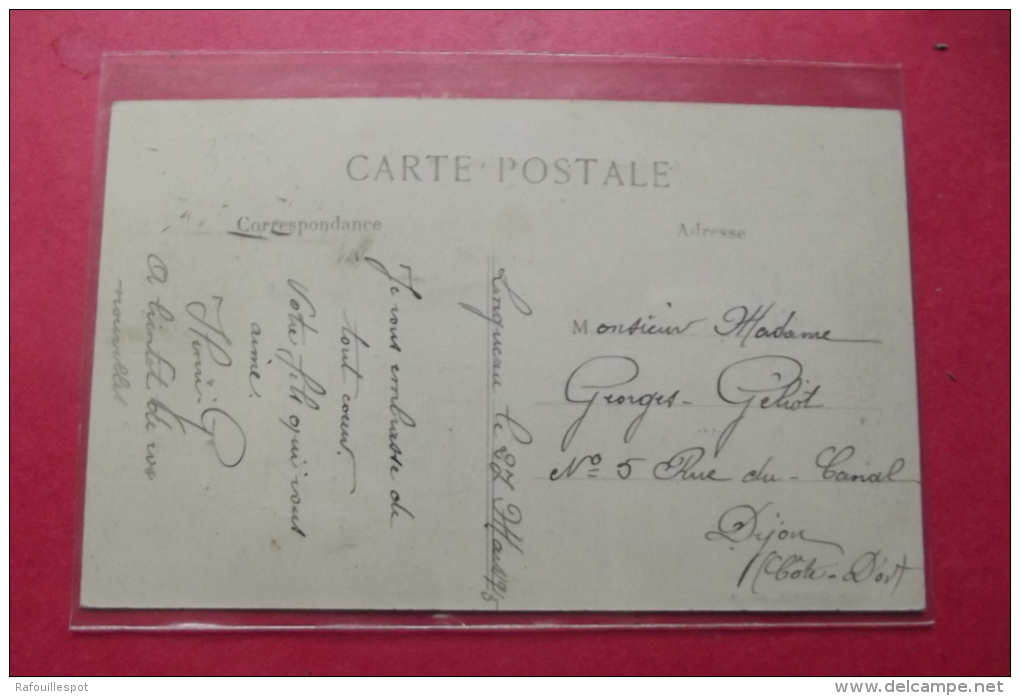 CARTE POSTALE
Correspondance
Adresse
Longueau le 27 Mars 1915
Je vous embrasse de
tout coeur.
Votre fils qui vous
aime.
Henri. G
A bientôt de vos
nouvelles.
Monsieur Madame
Georges Géliot
No 5 Rue du Canal
Dijon
(Côte-D'or)
Rafouillespot
www.delcampe.net